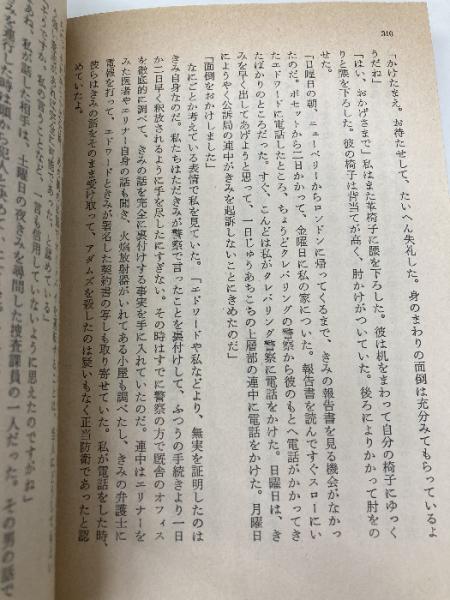 310
「かけたまえ。お待たせして、たいへん失礼した。身のまわりの面倒は充分みてもらっているよ
うだね」
「はい、おかげさまで」私はまた革椅子に腰を下ろした。彼は机をまわって自分の椅子にゆっく
りと腰を下ろした。彼の椅子は背当てが高く、肘かけがついていた。後ろによりかかって肘をの
せた。
「日曜日の朝、ニューベリーからロンドンに帰ってくるまで、きみの報告書を見る機会がなかっ
たのだ。ポセットから二日かかって、金曜日に私の家についた。報告書を読んですぐスローにい
たエドワードに電話したところ、ちょうどクレバリングの警察から彼のもとへ電話がかかってき
たばかりのところだった。すぐ、こんどは私がクレバリング警察に電話をかけた。日曜日は、き
みを早く出してあげようと思って、一日じゅうあちこちの上層部の連中に電話をかけた。月曜日
にようやく公訴局の連中がきみを起訴しないことにきめたのだ」
「面倒をおかけしました」
なにごとか考えている表情で私を見ていた。「エドワードや私などより、無実を証明したのは
きみ自身なのだ。私たちはただきみが警察で言ったことを裏付けして、ふつうの手続きより一日
か二日早く釈放されるように手を尽したにすぎない。その時はすでに警察の方で厩舎のオフィス
を徹底的に調べて、きみの話を完全に裏付けする事実を手に入れていたのだ。連中はエリナーを
みた医者やエリナー自身の話も聞き、火焔放射器がいれてある小屋も調べたし、きみの弁護士に
電報を打って、エドワードときみが署名した契約書の写しも取り寄せていた。私が電話をした時、
彼らはきみの話をそのまま受け取って、アダムズを殺したのは疑いもなく正当防衛であったと認
めていたよ。
あれ、私が話した相手は、土曜日の夜きみを尋問した捜査課員の一人だった。その男の話で